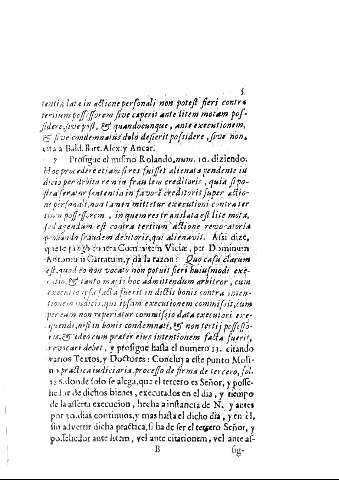 5
tentia, late in actione personali non potest fieri contra
tertium possessorem sive caperit ante litem motam possidere,
sive post, & quandocunque, ante executionem,
& sive condemnatus dolo desierit possidere, sive non.
cita a Bald. Bart. Alex. y Ancar.
7 Prosigue el mismo Rolando, num. 10. diziendo.
hoc procedere etiam si res fuisset alienata pendente iudicio
per debitorem in fraudem creditoris, quia si postea
feratur sententia in favorẽ creditoris super actione
personali, non tamen mittetur executioni contra tertium
possessorem, in quem res translata est lite mota,
sed agendum est contra tertium actione revocatoria
probando fraudem debitoris, qui alienavit. Assi dize,
contra Comitem Viciæ, per Dominum
Antonium Garratum, y dà la razon: Quo casu clarum
est, quod eo non vocato non potuit fieri huiusmodi executio,
& tanto magis hoc admittendum arbitror, cum
executio ipsa facta fuerit in dictis bonis contra intentionem
iudicis, qui ipsam executionem commisit, cum
per eum non reperiatur commissio data executori exequendi,
nisi in bonis condemnati, & non tertij possessoris,
& ideo cum præter eius intentionem facta fuerit,
revocari debet, y prosigue hasta el numero 13. citando
varios Textos, y Doctores: Concluya este punto Molino
practica iudiciaria, processo de firma de tercero, fol.
donde solo se alega, que el tercero es Señor, y possehedor
de dichos bienes, executados en el dia, y tiempo
de la asserta execucion, hecha a instancia de N. y antes
por 20. dias continuos, y mas hasta el dicho dia, y en èl,
sin advertir dicha practica, si ha de ser el tercero Señor, y
possehedor ante litem, vel ante citationem, vel ante as-
B sig-